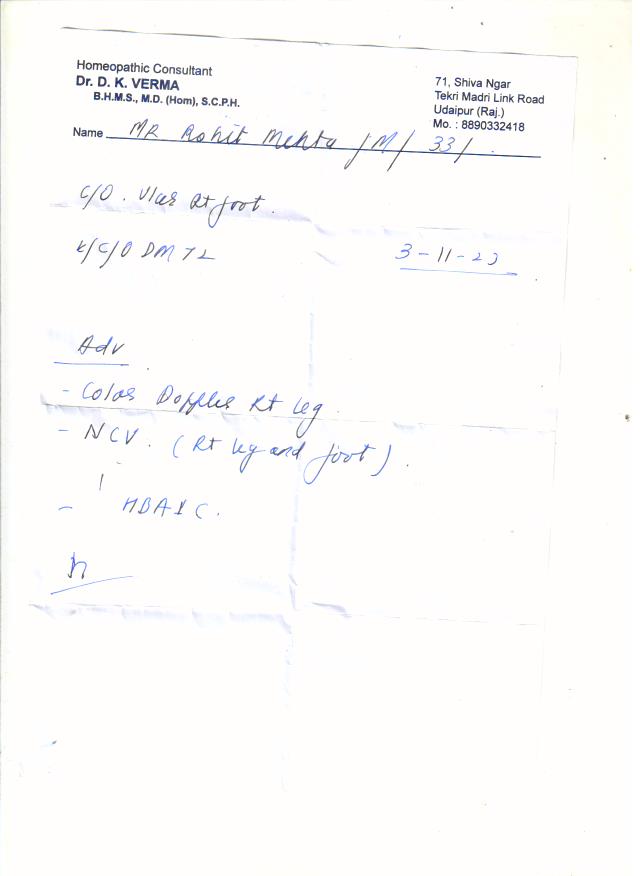 Homeopathic Consultant
Dr. D. K. VERMA
B.H.M.S., M.D. (Hom), S.C.P.H.
71, Shiva Ngar
Tekri Madri Link Road
Udaipur (Raj.)
Mo. : 8890332418
Name MR Rohit Mehta /M/ 33/
C/O. Ulcer Rt foot.
K/C/O DM T2
3-11-23
Adv
- Color Doppler Rt leg.
- NCV. (Rt leg and foot).
- HBA1C.